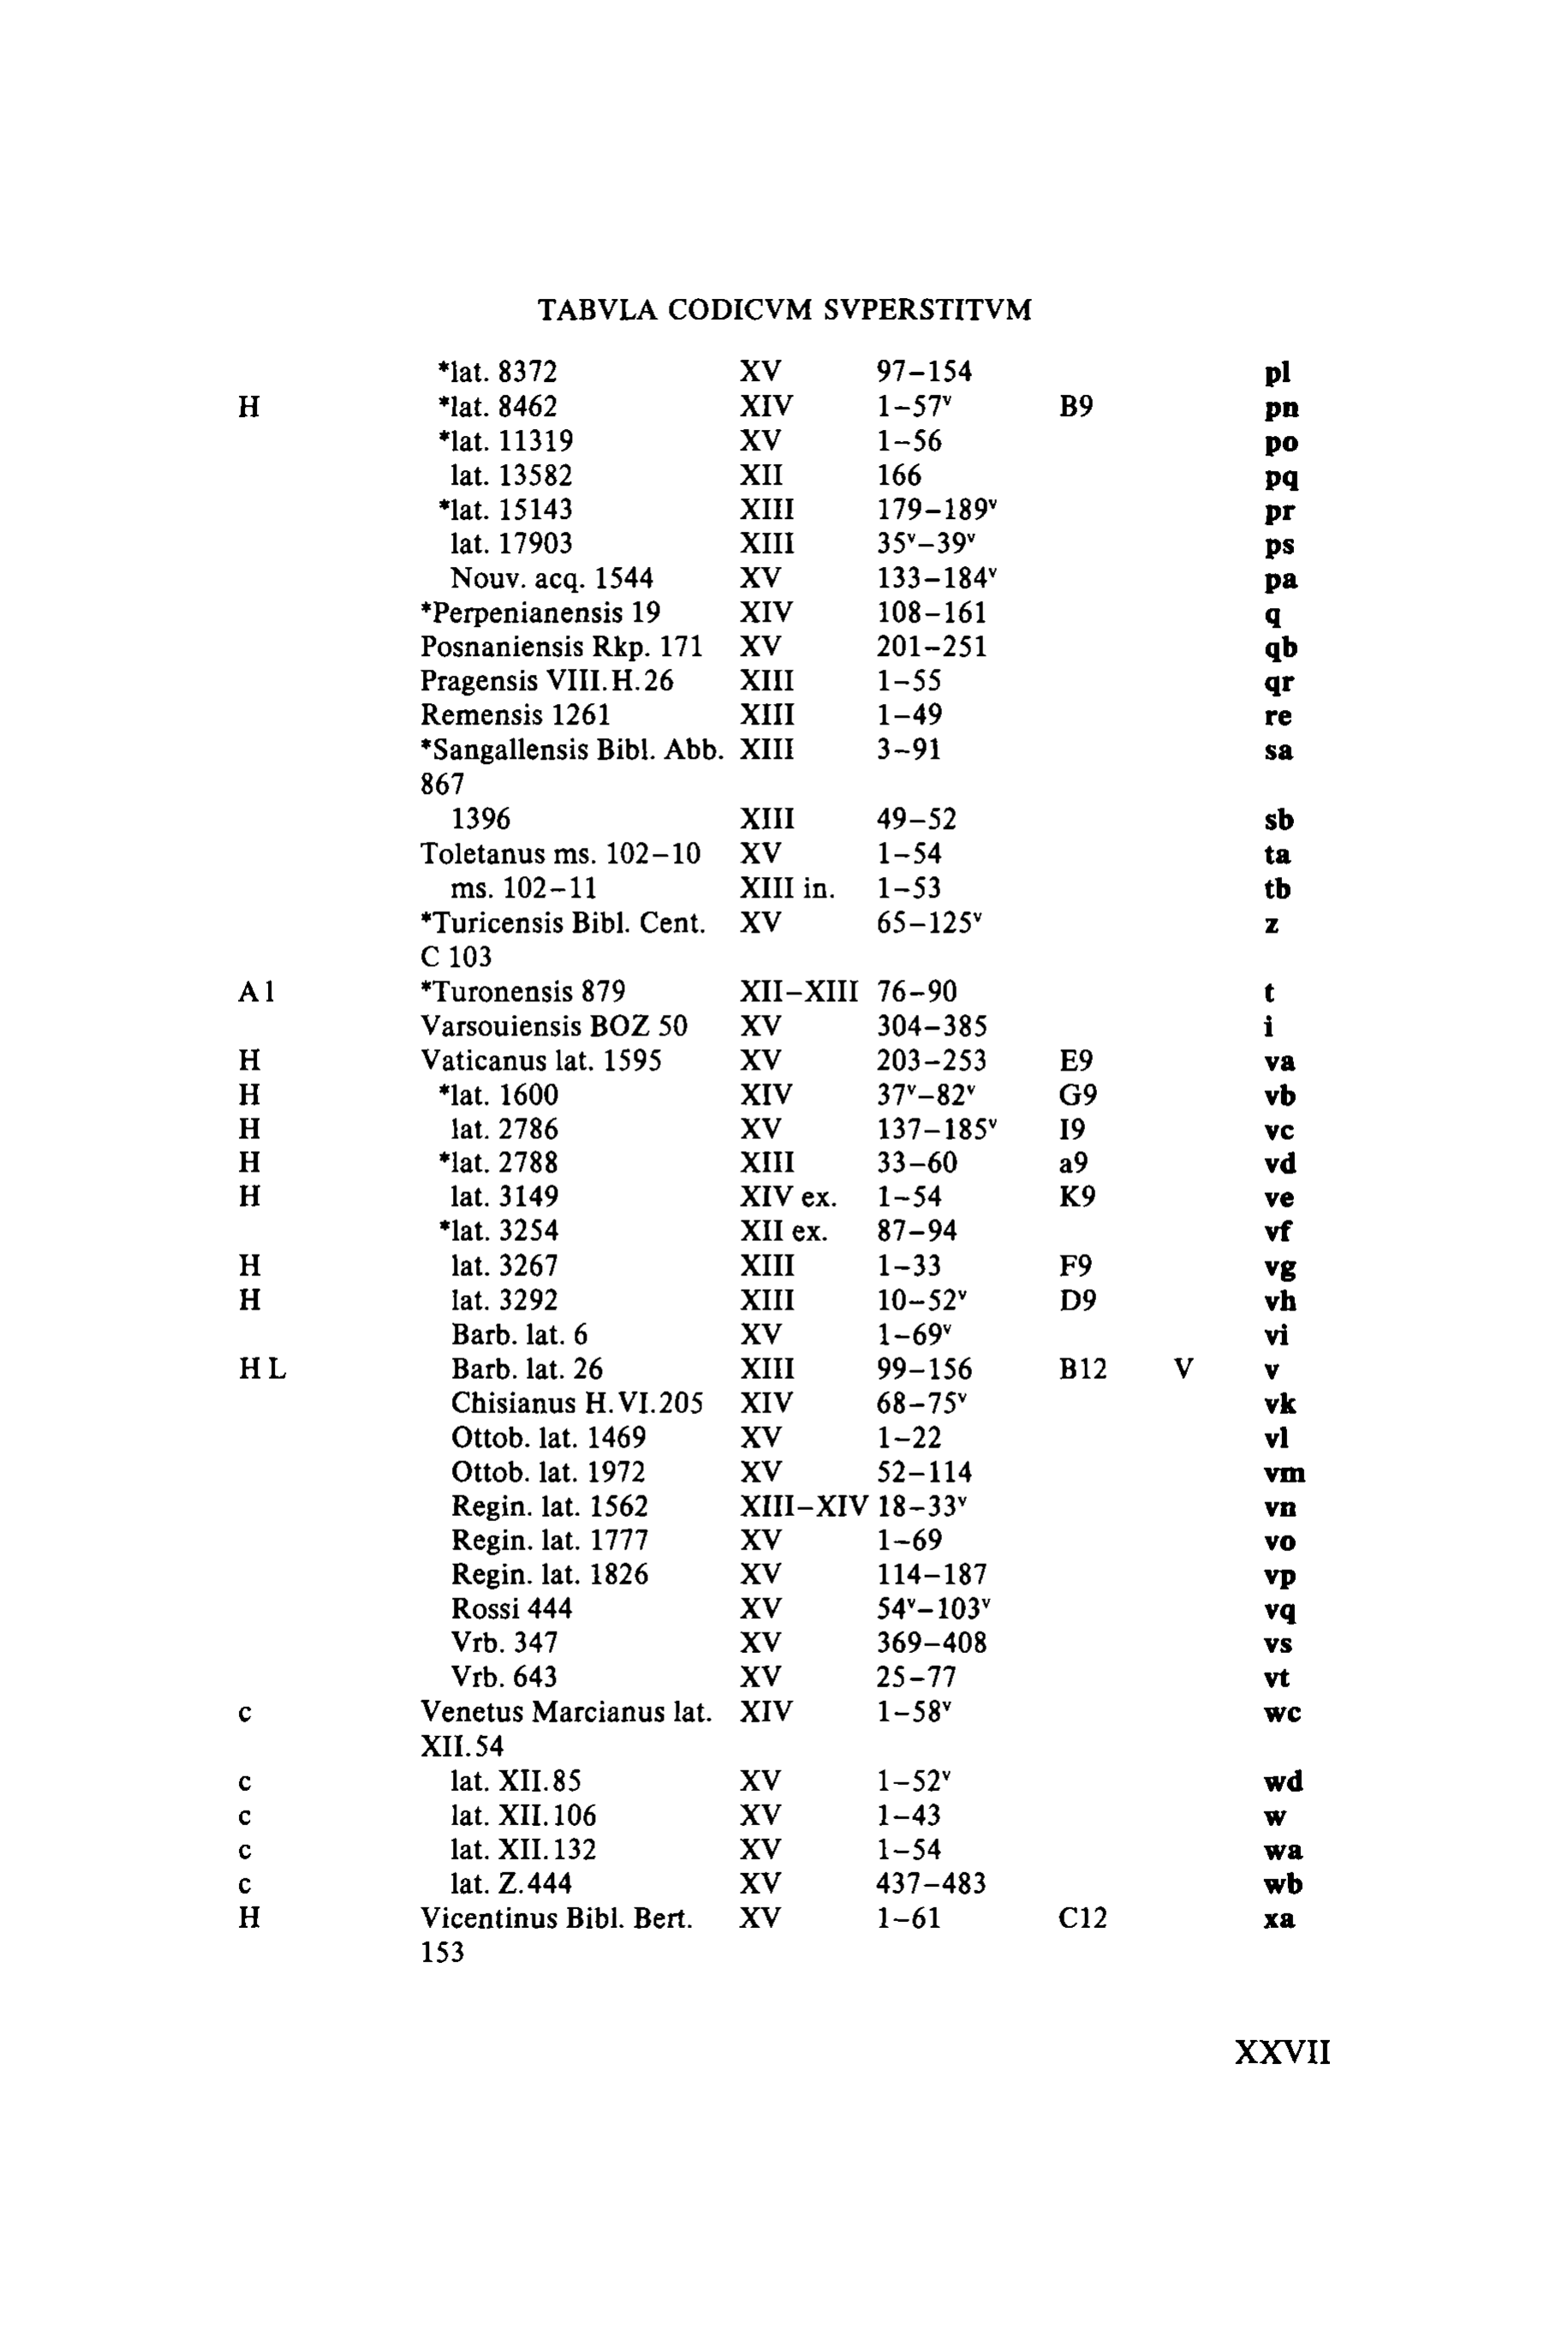 TABVLA CODICVM SVPERSTITVM
*lat. 8372 XV 97–154 pl
H *lat. 8462 XIV 1–57ᵛ B9 pn
*lat. 11319 XV 1–56 po
lat. 13582 XII 166 pq
*lat. 15143 XIII 179–189ᵛ pr
lat. 17903 XIII 35ᵛ–39ᵛ ps
Nouv. acq. 1544 XV 133–184ᵛ pa
*Perpenianensis 19 XIV 108–161 q
Posnaniensis Rkp. 171 XV 201–251 qb
Pragensis VIII.H.26 XIII 1–55 qr
Remensis 1261 XIII 1–49 re
*Sangallensis Bibl. Abb. XIII 3–91 sa
867
1396 XIII 49–52 sb
Toletanus ms. 102–10 XV 1–54 ta
ms. 102–11 XIII in. 1–53 tb
*Turicensis Bibl. Cent. XV 65–125ᵛ z
C 103
A1 *Turonensis 879 XII–XIII 76–90 t
Varsouiensis BOZ 50 XV 304–385 i
H Vaticanus lat. 1595 XV 203–253 E9 va
H *lat. 1600 XIV 37ᵛ–82ᵛ G9 vb
H lat. 2786 XV 137–185ᵛ I9 vc
H *lat. 2788 XIII 33–60 a9 vd
H lat. 3149 XIV ex. 1–54 K9 ve
*lat. 3254 XII ex. 87–94 vf
H lat. 3267 XIII 1–33 F9 vg
H lat. 3292 XIII 10–52ᵛ D9 vh
Barb. lat. 6 XV 1–69ᵛ vi
H L Barb. lat. 26 XIII 99–156 B12 V v
Chisianus H.VI.205 XIV 68–75ᵛ vk
Ottob. lat. 1469 XV 1–22 vl
Ottob. lat. 1972 XV 52–114 vm
Regin. lat. 1562 XIII–XIV 18–33ᵛ vn
Regin. lat. 1777 XV 1–69 vo
Regin. lat. 1826 XV 114–187 vp
Rossi 444 XV 54ᵛ–103ᵛ vq
Vrb. 347 XV 369–408 vs
Vrb. 643 XV 25–77 vt
c Venetus Marcianus lat. XIV 1–58ᵛ wc
XII.54
c lat. XII.85 XV 1–52ᵛ wd
c lat. XII.106 XV 1–43 w
c lat. XII.132 XV 1–54 wa
c lat. Z.444 XV 437–483 wb
H Vicentinus Bibl. Bert. XV 1–61 C12 xa
153
XXVII